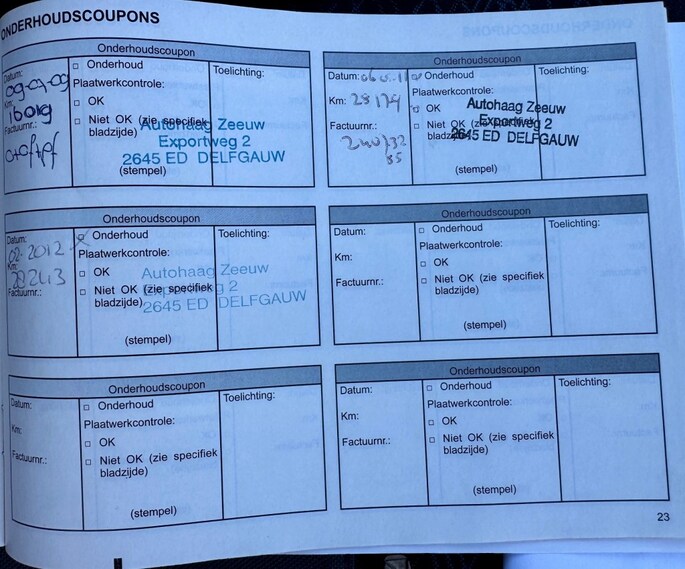 ONDERHOUDSCOUPONS
Onderhoudscoupon
Datum:
09-09-09
Km:
Factuurnr.:
□ Onderhoud
Plaatwerkcontrole:
□ OK
□ Niet OK (zie specifiek
bladzijde)
(stempel)
Toelichting:
Autohaag Zeeuw
Exportweg 2
2645 ED DELFGAUW
Onderhoudscoupon
Datum:
Km: 28179
Factuurnr.:
Onderhoud
Plaatwerkcontrole:
OK
□ Niet OK (zie specifiek
bladzijde)
(stempel)
Toelichting:
Autohaag Zeeuw
Exportweg 2
2645 ED DELFGAUW
Onderhoudscoupon
Datum:
02-2012
Km:
28243
Factuurnr.:
□ Onderhoud
Plaatwerkcontrole:
□ OK
□ Niet OK (zie specifiek
bladzijde)
(stempel)
Toelichting:
Autohaag Zeeuw
Exportweg 2
2645 ED DELFGAUW
Onderhoudscoupon
Datum:
Km:
Factuurnr.:
□ Onderhoud
Plaatwerkcontrole:
□ OK
□ Niet OK (zie specifiek
bladzijde)
(stempel)
Toelichting:
Onderhoudscoupon
Datum:
Km:
Factuurnr.:
□ Onderhoud
Plaatwerkcontrole:
□ OK
□ Niet OK (zie specifiek
bladzijde)
(stempel)
Toelichting:
Onderhoudscoupon
Datum:
Km:
Factuurnr.:
□ Onderhoud
Plaatwerkcontrole:
□ OK
□ Niet OK (zie specifiek
bladzijde)
(stempel)
Toelichting:
23